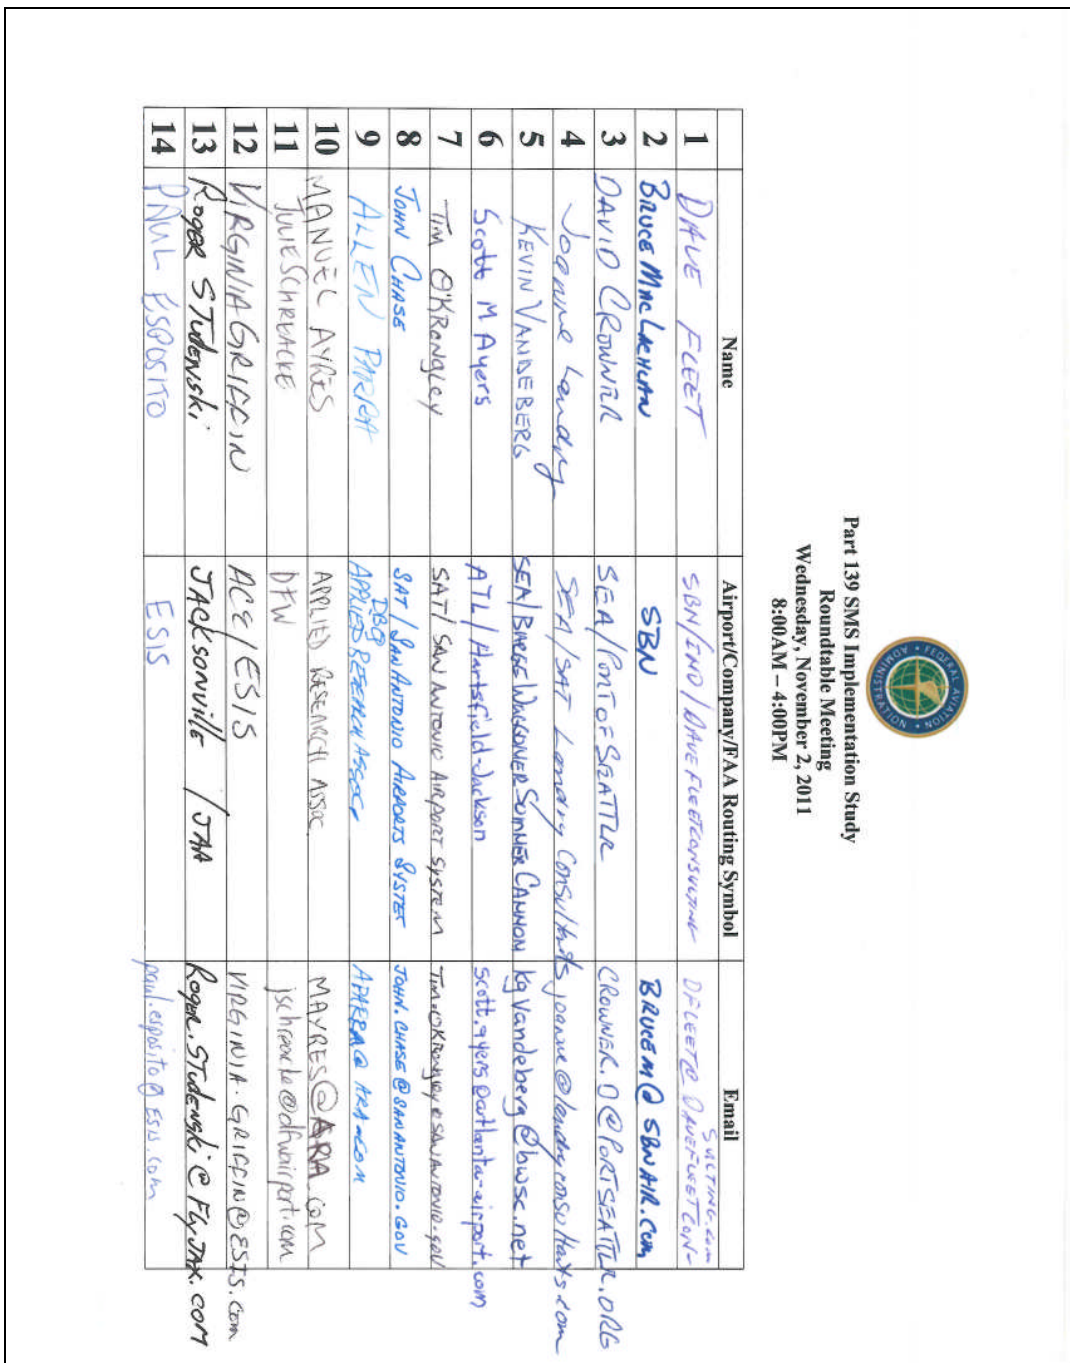 FEDERAL AVIATION ADMINISTRATION
Part 139 SMS Implementation Study
Roundtable Meeting
Wednesday, November 2, 2011
8:00AM – 4:00PM
Name Airport/Company/FAA Routing Symbol Email
1 DAVE FLEET SBN/IND/DAVE FLEETCONSULTING DFLEET@DAVEFLEETCON-
SULTING.com
2 BRUCE MACLACHLAN SBN BRUCEM@SBNAIR.Com
3 DAVID CROWNER SEA/PORT OF SEATTLE CROWNER.D@PORTSEATTLE.ORG
4 Joanne Landry SEA/SAT Landry Consultants joanne@landryconsultants.com
5 KEVIN VANDEBERG SEA/BARGE WAGGONER SUMNER CANNON kgvandeberg@bwsc.net
6 Scott M Ayers ATL/Hartsfield-Jackson scott.ayers@atlanta-airport.com
7 TIM O'KRONGLEY SAT/SAN ANTONIO AIRPORT SYSTEM TIM.OKRONGLEY@SANANTONIO.gov
8 JOHN CHASE SAT/SAN ANTONIO AIRPORTS SYSTEM JOHN.CHASE@SANANTONIO.GOV
9 ALLEN PARRA DBQ
APPLIED RESEARCH ASSOC. APARRA@ARA.COM
10 MANUEL AYRES APPLIED RESEARCH ASSOC MAYRES@ARA.COM
11 JULIE SCHREACKE DFW jschreacke@dfwairport.com
12 VIRGINIA GRIFFIN ACE/ESIS VIRGINIA.GRIFFIN@ESIS.com
13 Roger STudenski JACKsonville /JAA Roger.STudenski@FlyJAX.com
14 PAUL ESPOSITO ESIS paul.esposito@ESIS.com